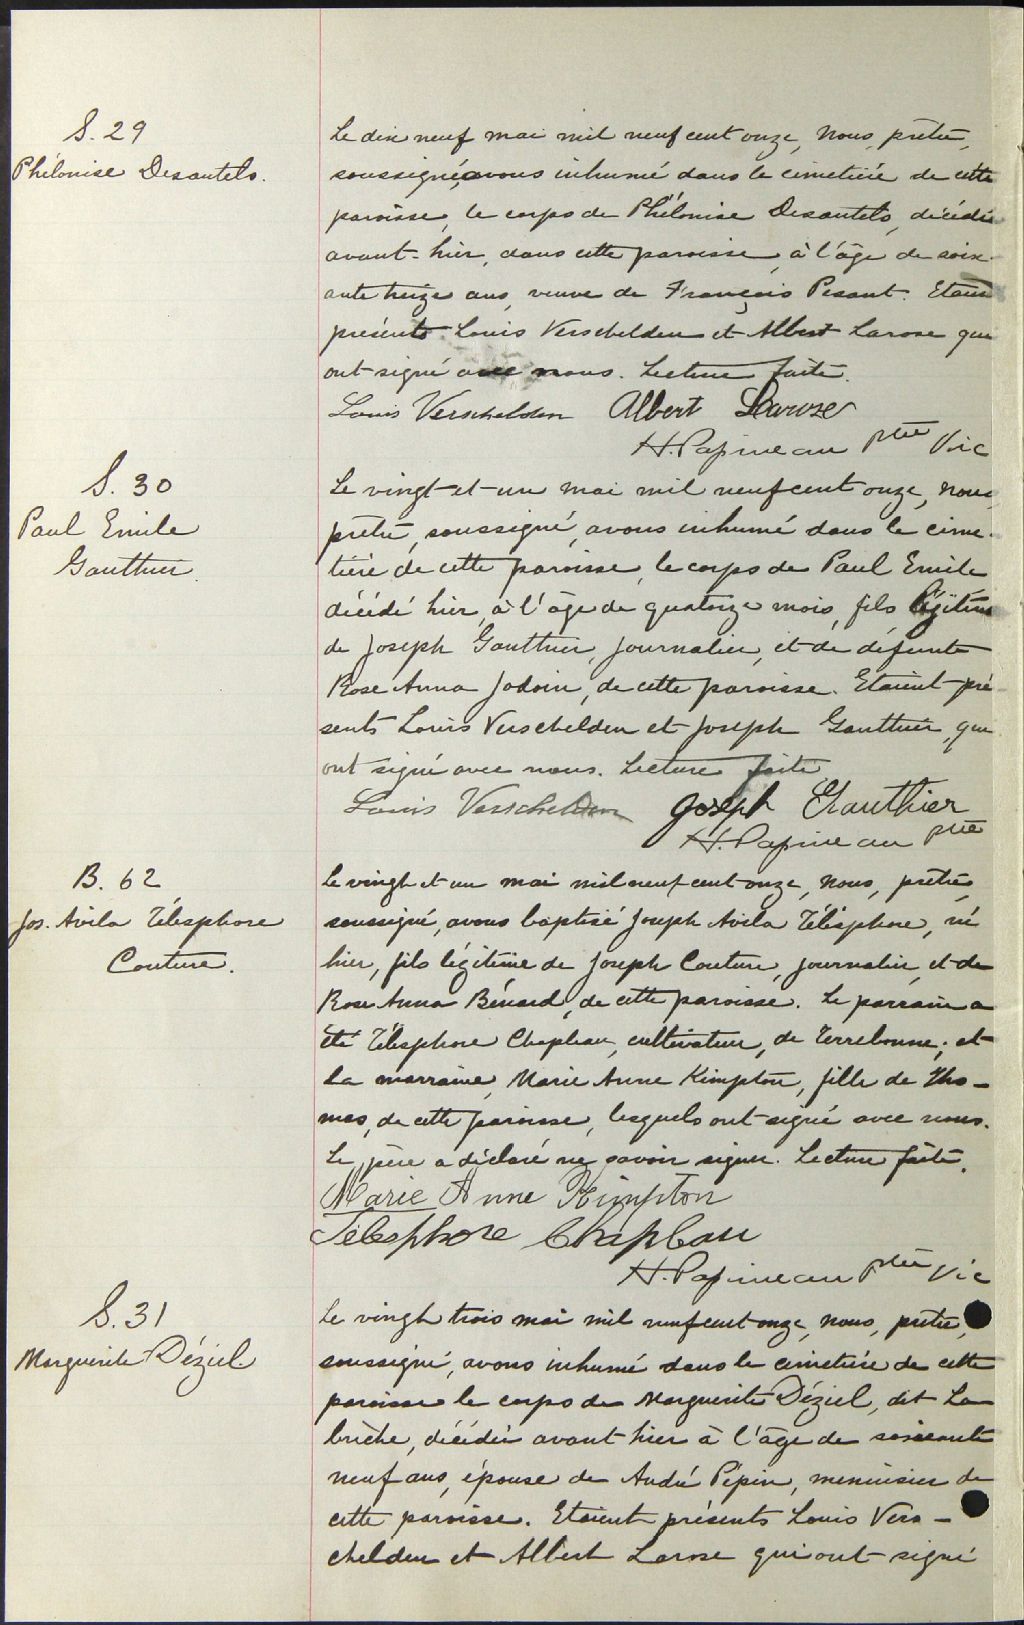 S. 29
Philonise Desautels.
Le dix neuf mai mil neuf cent onze, nous, prêtre,
soussigné, avons inhumé dans le cimetière de cette
paroisse, le corps de Philonise Desautels, décédée
avant-hier, dans cette paroisse, à l'âge de soix-
ante treize ans, veuve de François Pesant. Etaient
présents Louis Verschelden et Albert Larose qui
ont signé avec nous. Lecture faite.
Louis Verschelden Albert Larose
H. Papineau ptre Vic
S. 30
Paul Emile
Gauthier.
Le vingt-et-un mai mil neuf cent onze, nous,
prêtre, soussigné, avons inhumé dans le cime-
tière de cette paroisse, le corps de Paul Emile
décédé hier, à l'âge de quatorze mois, fils légitime
de Joseph Gauthier, journalier, et de défunte
Rose Anna Jodoin, de cette paroisse. Etaient pré-
sents Louis Verschelden et Joseph Gauthier, qui
ont signé avec nous. Lecture faite
Louis Verschelden Joseph Gauthier
H. Papineau ptre
B. 62
Jos. Avila Télesphore
Couture.
Le vingt et un mai mil neuf cent onze, nous, prêtre,
soussigné, avons baptisé Joseph Avila Télesphore, né
hier, fils légitime de Joseph Couture, journalier, et de
Rose Anna Bénard, de cette paroisse. Le parrain a
été Télesphore Chapleau, cultivateur, de Terrebonne, et
la marraine, Marie Anne Kimpton, fille de Tho-
mas, de cette paroisse, lesquels ont signé avec nous.
Le père a déclaré ne savoir signer. Lecture faite.
Marie Anne Kimpton
Télesphore Chapleau
H. Papineau ptre Vic
S. 31
Marguerite Déziel.
Le vingt trois mai mil neuf cent onze, nous, prêtre,
soussigné, avons inhumé dans le cimetière de cette
paroisse le corps de Marguerite Déziel, dit La-
brèche, décédée avant hier à l'âge de soixante
neuf ans, épouse de André Pépin, menuisier de
cette paroisse. Etaient présents Louis Vers-
chelden et Albert Larose qui ont signé